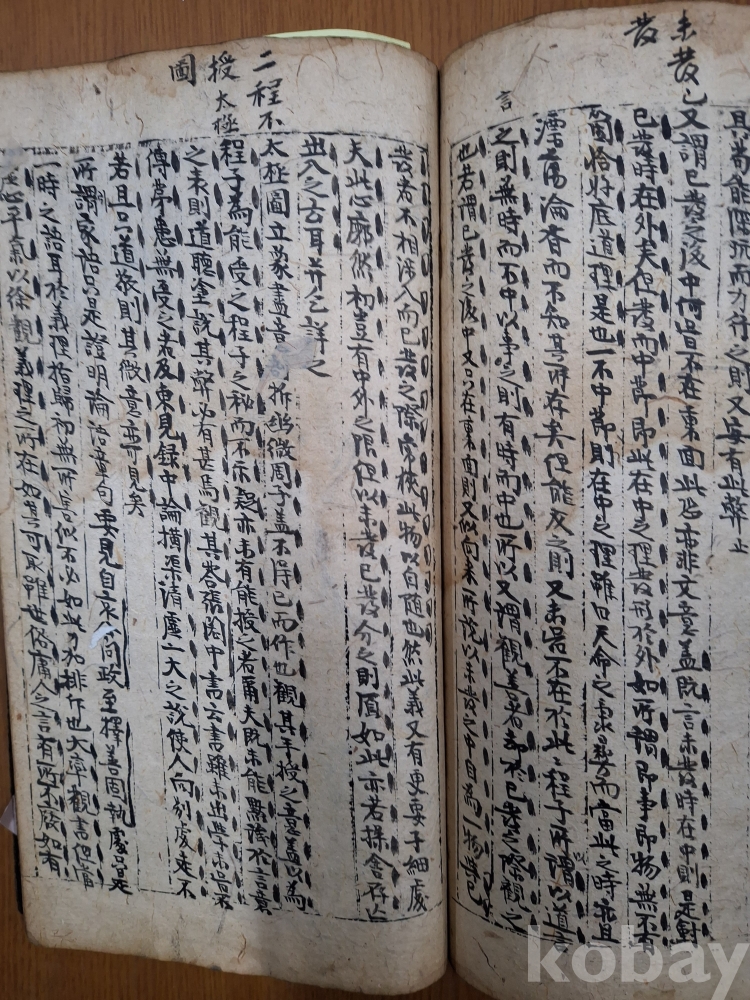 未發已
發
具着能深沉而力行之則又安有此弊止
又謂已發之後中何嘗不在裏面此恐亦非文意盖旣言未發時在中則是對
已發時在外矣但發而中節即此在中之理發形於外如所謂即事即物無不有
箇恰好底道理是也一不中節則在中之理雖曰天命之秉彛而當此之時亦且
漂蕩淪胥而不知其所存矣但能反之則又未嘗不在於此程子所謂以道言
之則無時而不中以事言之則有時而中也所以又謂觀善者却於已發之際觀之
言
也若謂已發之後中又只在裏面則又似向來所說以未發之中自爲一物與已
發者不相涉入而已發之際常挾此物以自隨也然此義又有更要子細處
夫此心廓然初豈有中外之限但以未發已發分之則須如此亦若操舍存亡
出入之云耳并乞詳之
二程不
授太極
圖
太極圖立象盡意剖析幽微周子盖不得已而作也觀其手授之意盖以爲
程子爲能受之程子之秘而不示疑亦未有能授之者爾夫旣未能黙識於言意
之表則道聽塗說其弊必有甚焉觀其答張閎中書云書雖未出學未嘗不
傳第患無受之者及東見錄中論橫渠清虛一大之說使人向別處走不
若且只道敬則其微意亦可見矣
所謂家語只是證明論語章句 要見自哀公問政至擇善固執處皆是
一時之語耳於義理指歸初無所害似不必如此力加排斥也大率觀書但當
虛心平氣以徐觀義理之所在如其可取雖世俗庸人之言有所不廢如有